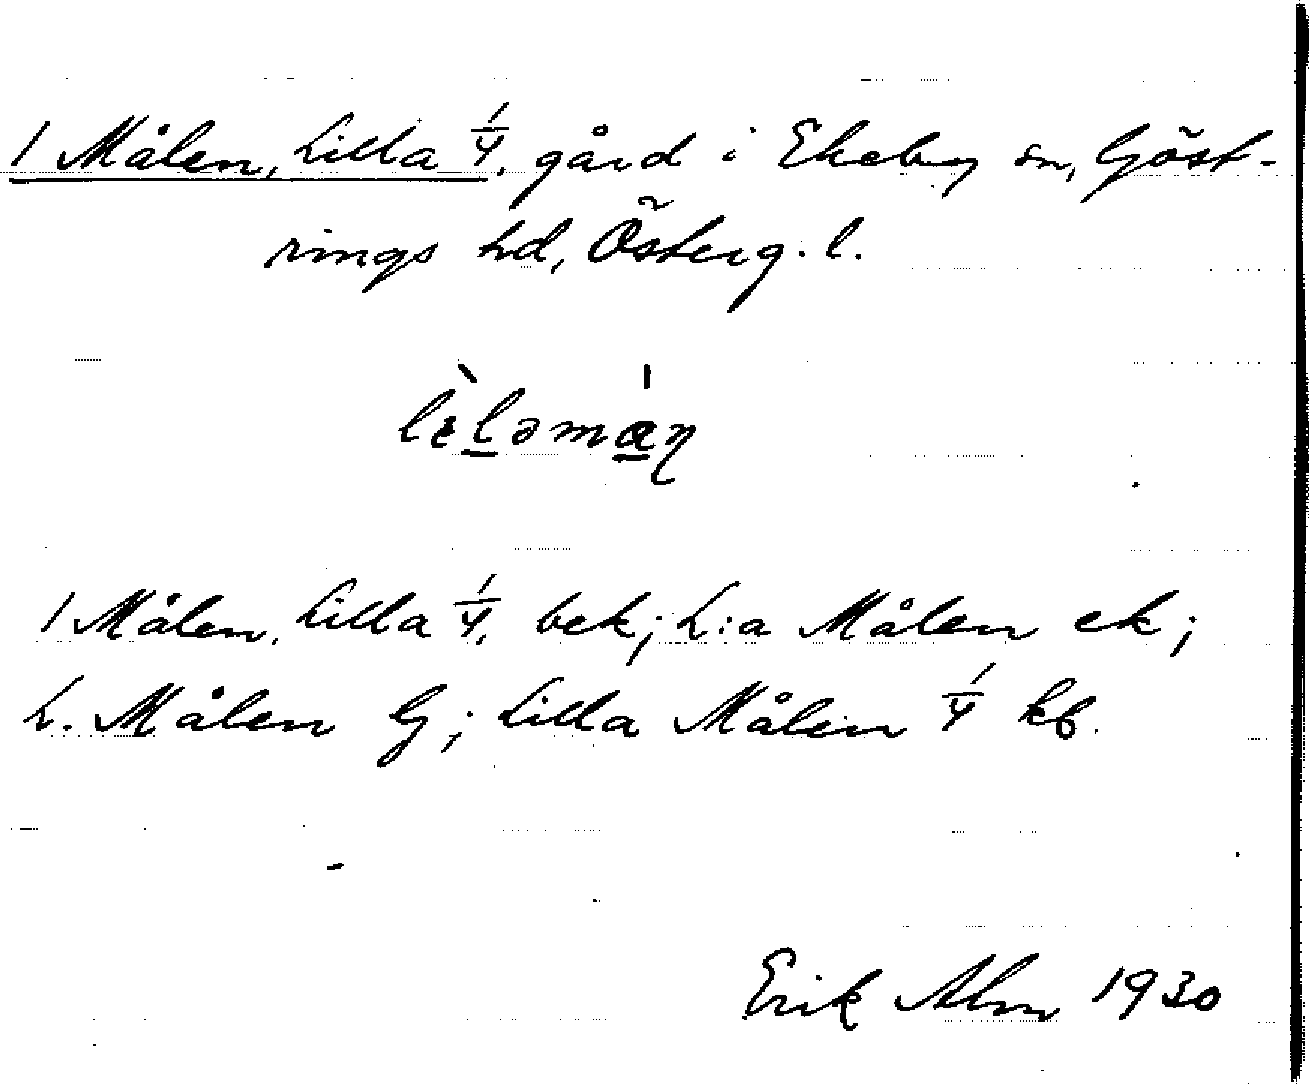 1 Målen, Lilla 1/4, gård i Ekeby sn, Göst-
rings hd, Österg. l.
1 Målen, Lilla 1/4, bek; L:a Målen ek;
L. Målen G; Lilla Målen 1/4 kb.
Erik Alm 1930